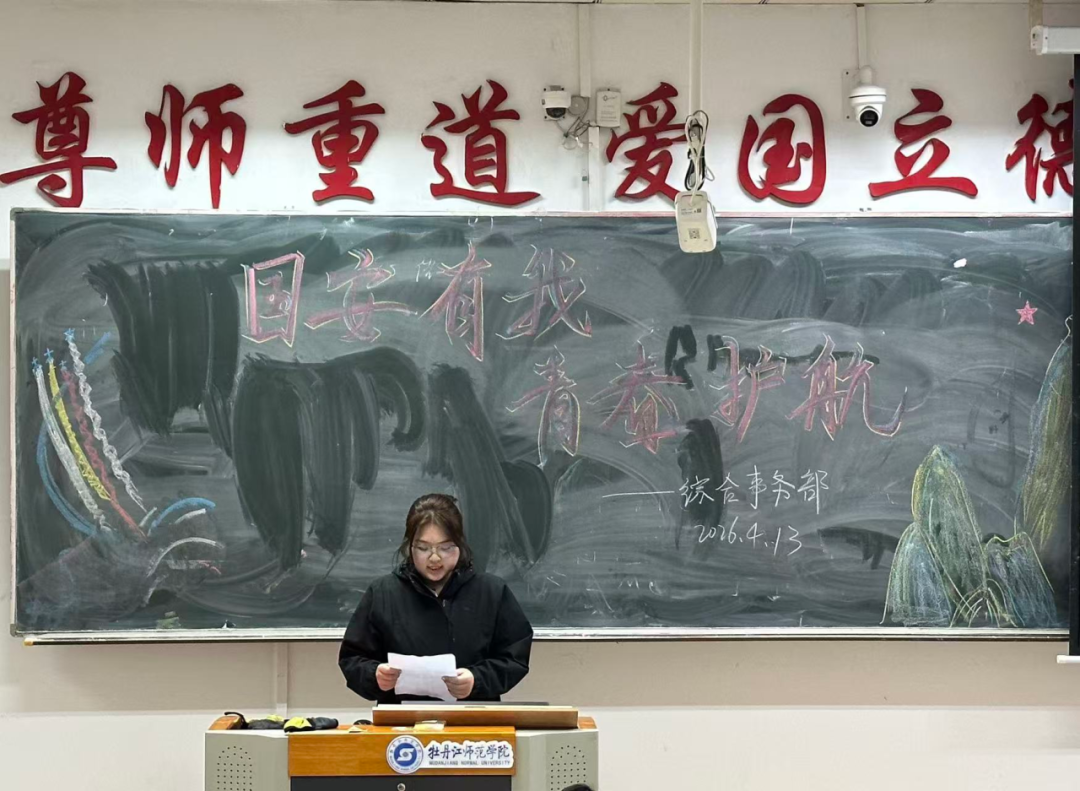 尊师重道爱国立德
国安有我
青春护航
——综合事务部
2026.4.13
牡丹江师范学院
MUDANJIANG NORMAL UNIVERSITY